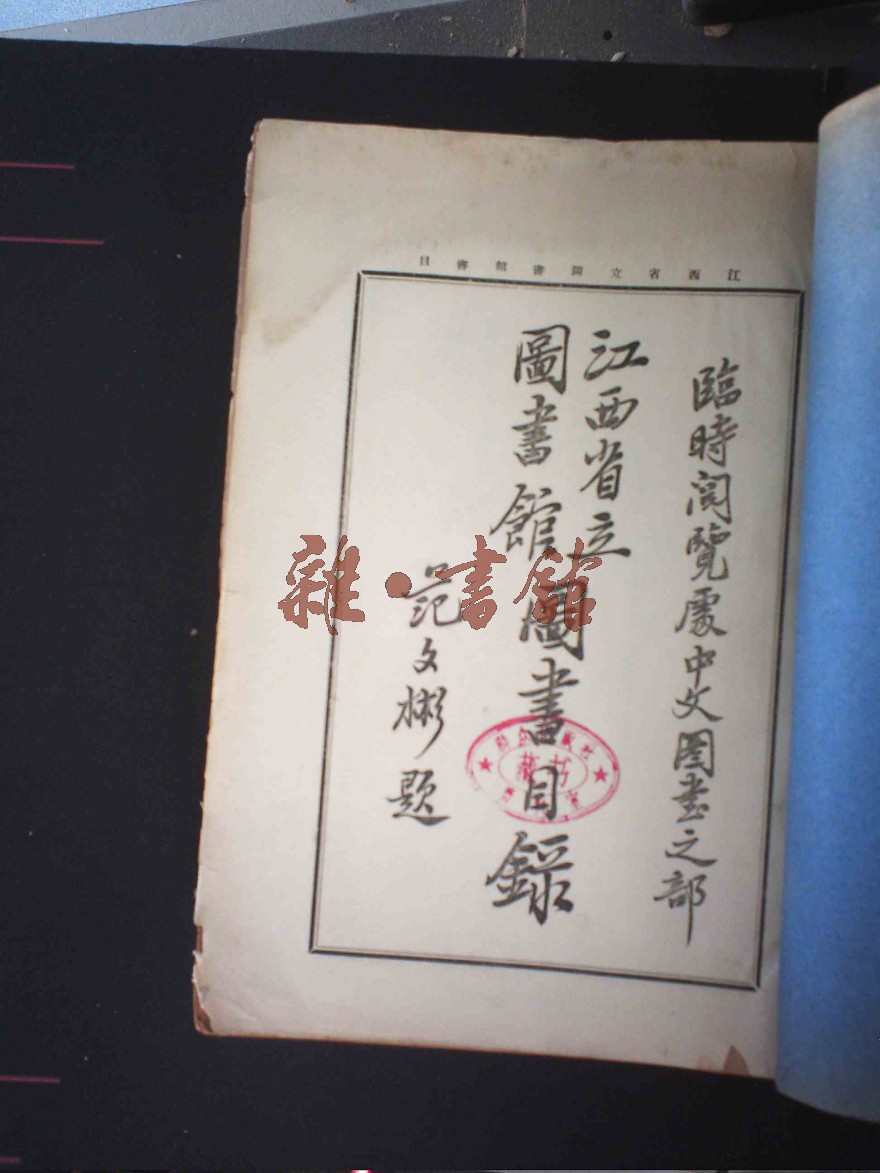 江西省立圖書館書目
臨時閱覽處中文圖書之部
江西省立
圖書館圖書目錄
文彬題
雜·書館
藏书